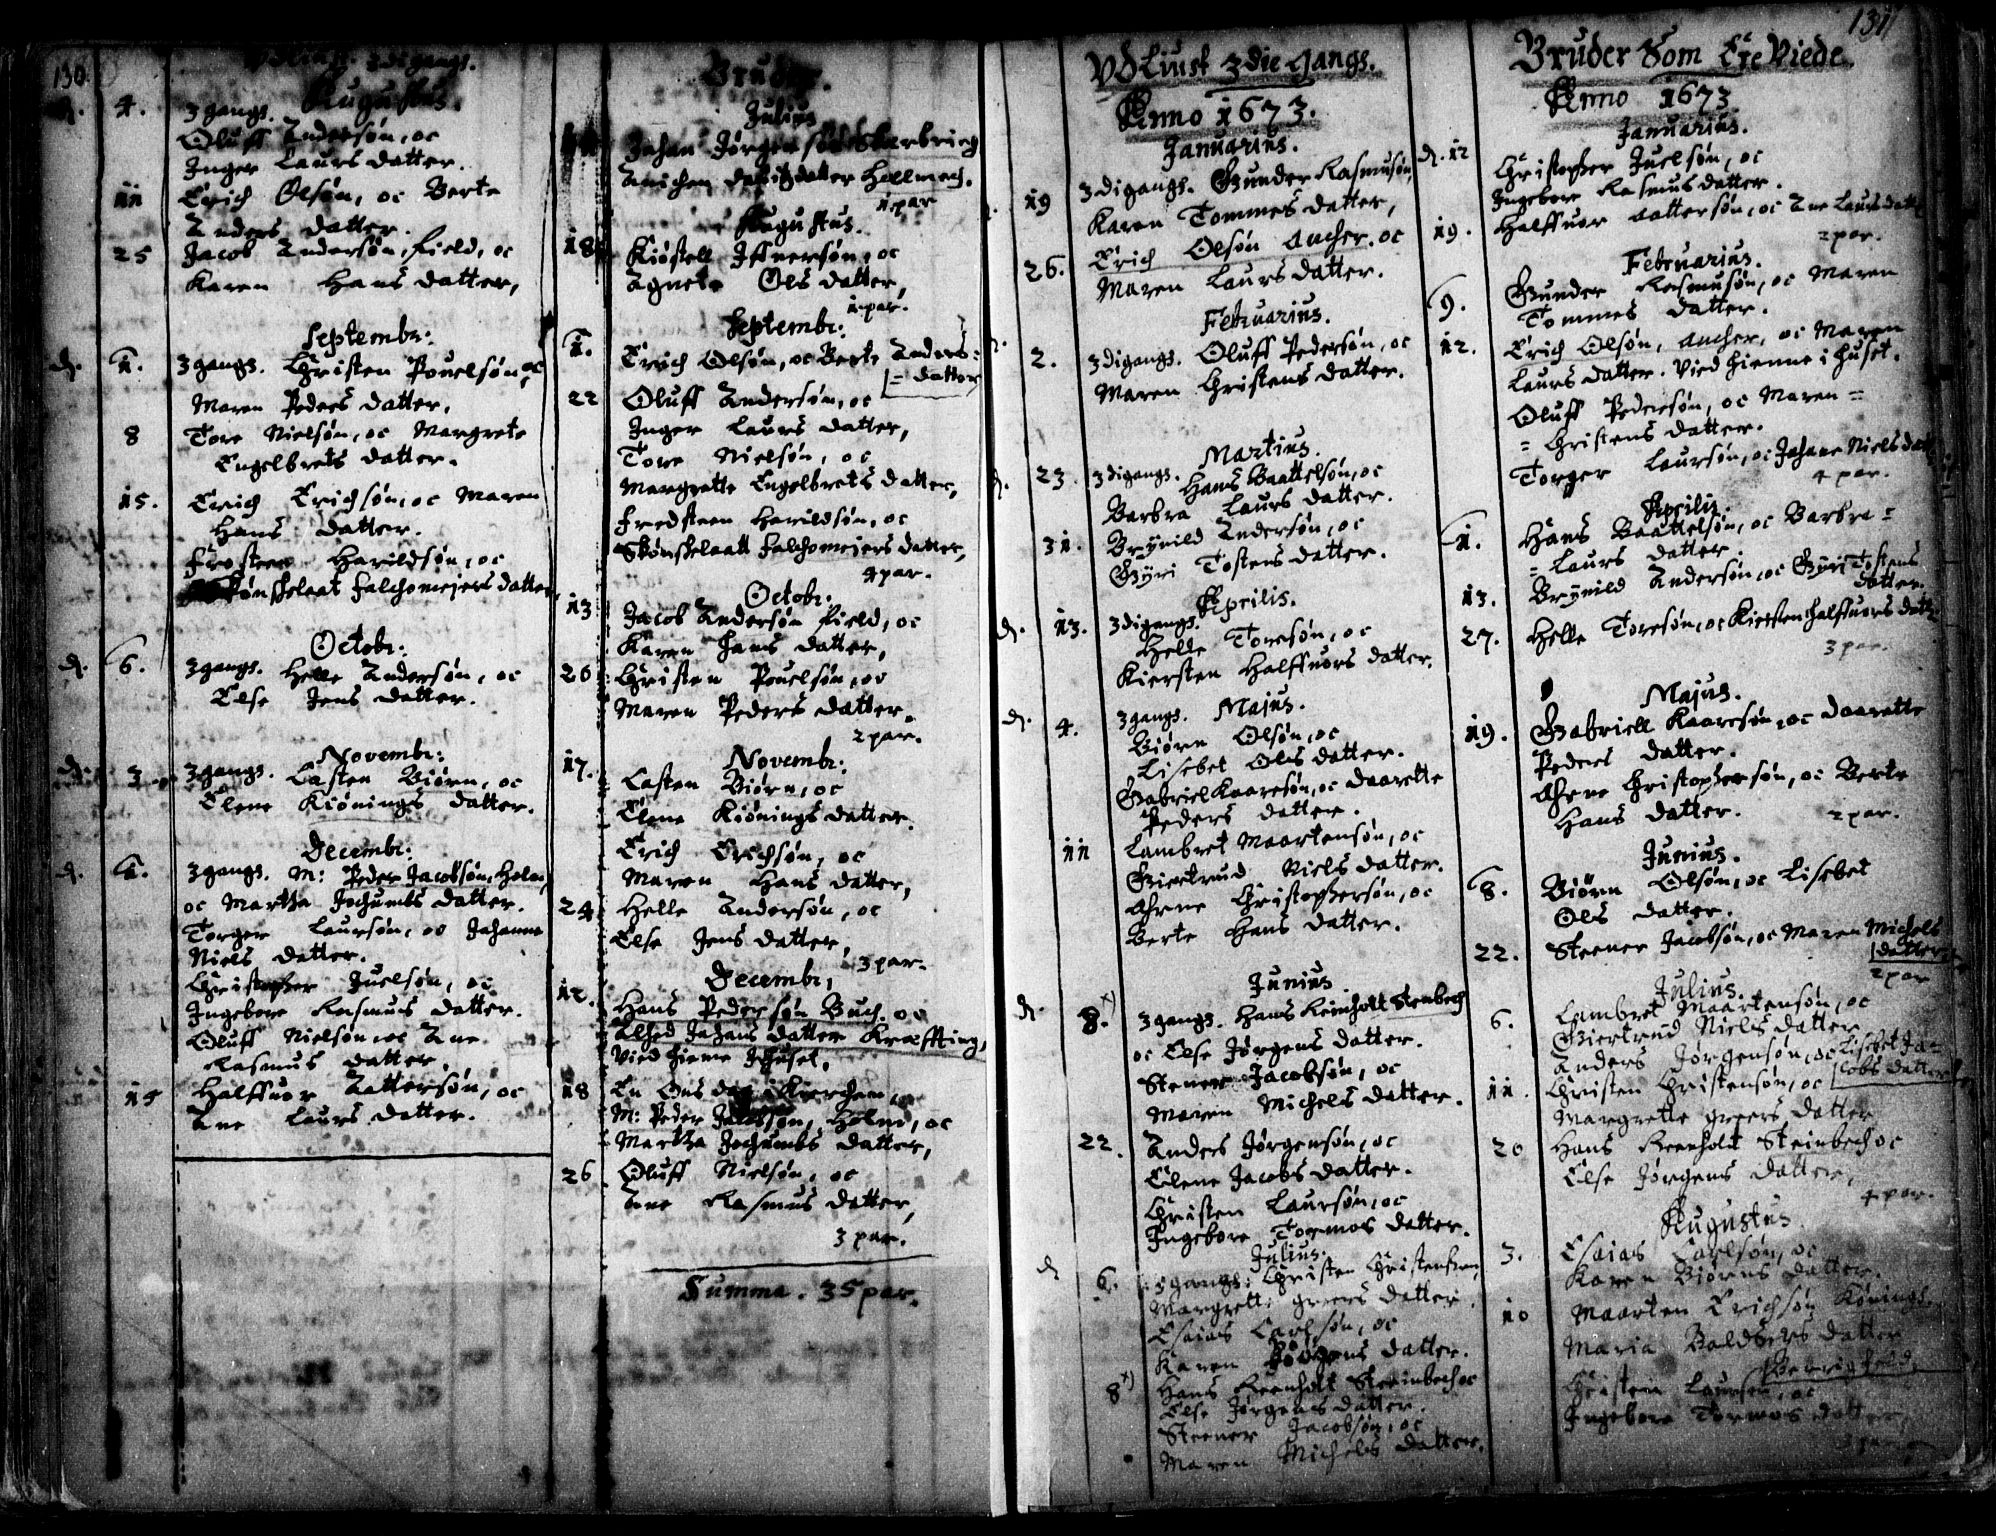 130
3die gangs.
Augustus.
d. 4. 3 gangs.
Oluff Andersøn, oc
Inger Laurs datter.
11 Erich Olsøn, oc Berte
Anders datter.
25 Jacob Andersøn field, oc
Karen Hans datter,
Septembr:
d. 1. 3 gangs. Christen Pouelsøn, oc
Maren Peders datter.
8 Tore Nielsøn, oc Margrete
Engelbrets datter.
15. Erich Erichsøn, oc Maren
Hans datter.
Frosteen Harildsøn, oc
Skønskelaat Falchomejers datter
Octobr:
d. 6. 3 gangs. Helle Andersøn, oc
Else Jens datter.
Novembr:
d. 3 3 gangs. Casten Biørn, oc
Elene Kiønings datter.
Decembr:
d. 1. 3 gangs. M: Peder Jacobsøn, Holm,
oc Martha Jochumbs datter.
Torger Laursøn, oc Johanne
Niels datter.
Christopher Juelsøn, oc
Ingebore Rasmus datter.
Oluff Nielsøn, oc Ane
Rasmus datter.
15 Halffuor Aattersøn, oc
Ane Laurs datter.
Bruder.
Julius
Johan Jørgensøn
Anichen Davidzdatter Hellmech.
1 par
Augustus.
18 Kiøstell Iffuersøn, oc
Agnete Ols datter,
1 par.
Septembr:
1. Erich Olsøn, oc Berte Anders=
= datter
22 Oluff Andersøn, oc
Inger Laurs datter,
Tore Nielsøn, oc
Margrette Engelbrets datter,
Frodsteen Harildsøn, oc
Skønskelaatt Falchomejers datter,
4 par.
Octobr:
13 Jacob Andersøn field, oc
Karen Hans datter,
20 Christen Pouelsøn, oc
Maren Peders datter.
2 par.
Novembr:
17. Casten Biørn, oc
Elene Kiønings datter.
Erich Erichsøn, oc
Maren Hans datter,
24 Helle Andersøn, oc
Else Jens datter,
3 par.
Decembr,
12. Hans Pedersøn Buch. oc
Alhed Johans datter Kræffting,
Vied hieme J huset.
18 En Ons dag i Kierchen
M: Peder Jacobsøn, Holm, oc
Martha Jochumbs datter,
26 Oluff Nielsøn, oc
Ane Rasmus datter,
3 par.
Summa. 35 par.
131
VdLiust 3die gangs.
Anno 1673.
Januarius.
19 3die gangs. Gunder Rasmusøn,
Karen Tommes datter,
26. Erich Olsøn Ancher. oc
Maren Laurs datter.
Februarius.
2. 3die gangs. Oluff Pedersøn, oc
Maren Christens datter.
Martius.
23. 3die gangs. Hans Baattelsøn, oc
Barbra Laurs datter.
31. Brynild Andersøn, oc
Gyri Tostens datter.
Aprilis.
d. 13. 3die gangs.
Helle Toresøn, oc
Kiersten Halffuors datter.
Majus.
d. 4. 3 gangs.
Biørn Olsøn, oc
Lisebet Ols datter.
Gabriel Kaaresøn, oc daarette
Peders datter.
11 Lambret Maartensøn, oc
Giertrud Niels datter.
Ahrne Christophersøn, oc
Berte Hans datter.
Junius
d. 8. x) 3 gangs. Hans Reinholt Steenbech
oc Else Jørgens datter.
Stener Jacobsøn, oc
Maren Michels datter.
22. Anders Jørgensøn, oc
Elene Jacobs datter.
Christen Laursøn, oc
Ingebore Tormos datter.
Julius.
d. 6. 3 gangs: Christen Christensen,
Margrette greers datter.
Esaias Carlsøn, oc
Karen Biørns datter.
8 x) Hans Reenholt Steinbech oc
Else Jørgens datter.
Steener Jacobsøn, oc
Maren Michels datter.
Bruder Som Ere Viede.
Anno 1673
Januarius.
d. 12 Christopher Juelsøn, oc
Ingebore Rasmus datter.
19. Halffuor Aattersøn, oc Ane Laurs datter
2 par.
Februarius.
9. Gunder Rasmusøn, oc Maren
Tommes datter.
12. Erich Olsøn, Ancher, oc Maren
Laurs datter. Vied hiemme i huset.
Oluff Pedersøn, oc Maren =
= Christens datter.
Torger Laursøn, oc Johane Niels datter
4 par.
Aprilis.
1. Hans Baattelsøn, oc Barbra =
= Laurs datter.
13. Brynild Andersøn, oc Gyri Tostens
datter.
27. Helle Toresøn, oc Kiersten Halffuors datter
3 par.
Majus.
19. Gabriell Kaaresøn, oc daarette
Peders datter.
Ahrne Christophersøn, oc Berte
Hans datter.
2 par.
Junius.
8. Biørn Olsøn, oc Lisebet
Ols datter.
22. Steener Jacobsøn, oc Maren Michels
datter
2 par
Julius.
6. Lambret Maartensøn, oc
Giertrud Niels datter
Anders Jørgensøn, oc Lisebet Ja=
cobs datter
11. Christen Christensøn, oc
Margrette greers datter
20 Hans Reenholt Steinbech oc
Else Jørgens datter,
4 par.
Augustus
3. Esaias Carlsøn, oc
Karen Biørns datter.
10 Maarten Erichsøn Kønings
Maria Baldzers datter
Christen Laursøn, oc
Ingebore Tormos datter,
3 par